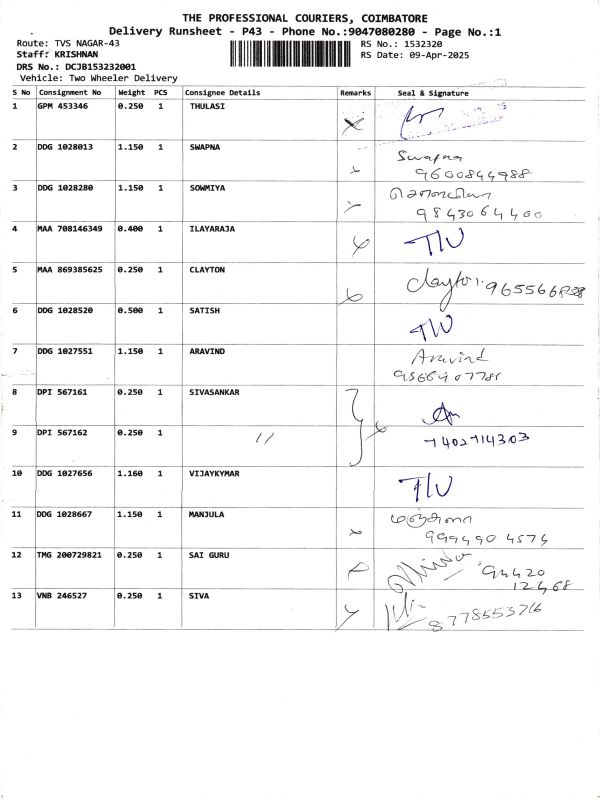 THE PROFESSIONAL COURIERS, COIMBATORE
Delivery Runsheet - P43 - Phone No.:9047080280 - Page No.:1
Route: TVS NAGAR-43 RS No.: 1532320
Staff: KRISHNAN RS Date: 09-Apr-2025
DRS No.: DCJB153232001
Vehicle: Two Wheeler Delivery
S No Consignment No Weight PCS Consignee Details Remarks Seal & Signature
1 GPM 453346 0.250 1 THULASI
2 DDG 1028013 1.150 1 SWAPNA Swapna
9600844988
3 DDG 1028280 1.150 1 SOWMIYA
9843064400
4 MAA 708146349 0.400 1 ILAYARAJA T/U
5 MAA 869385625 0.250 1 CLAYTON Clayton
6 DDG 1028520 0.500 1 SATISH T/U
7 DDG 1027551 1.150 1 ARAVIND Aravind
8 DPI 567161 0.250 1 SIVASANKAR
9 DPI 567162 0.250 1 // 7402714303
10 DDG 1027656 1.160 1 VIJAYKYMAR T/U
11 DDG 1028667 1.150 1 MANJULA மஞ்சுளா
9994904574
12 TMG 200729821 0.250 1 SAI GURU 94420
12468
13 VNB 246527 0.250 1 SIVA 8778553716